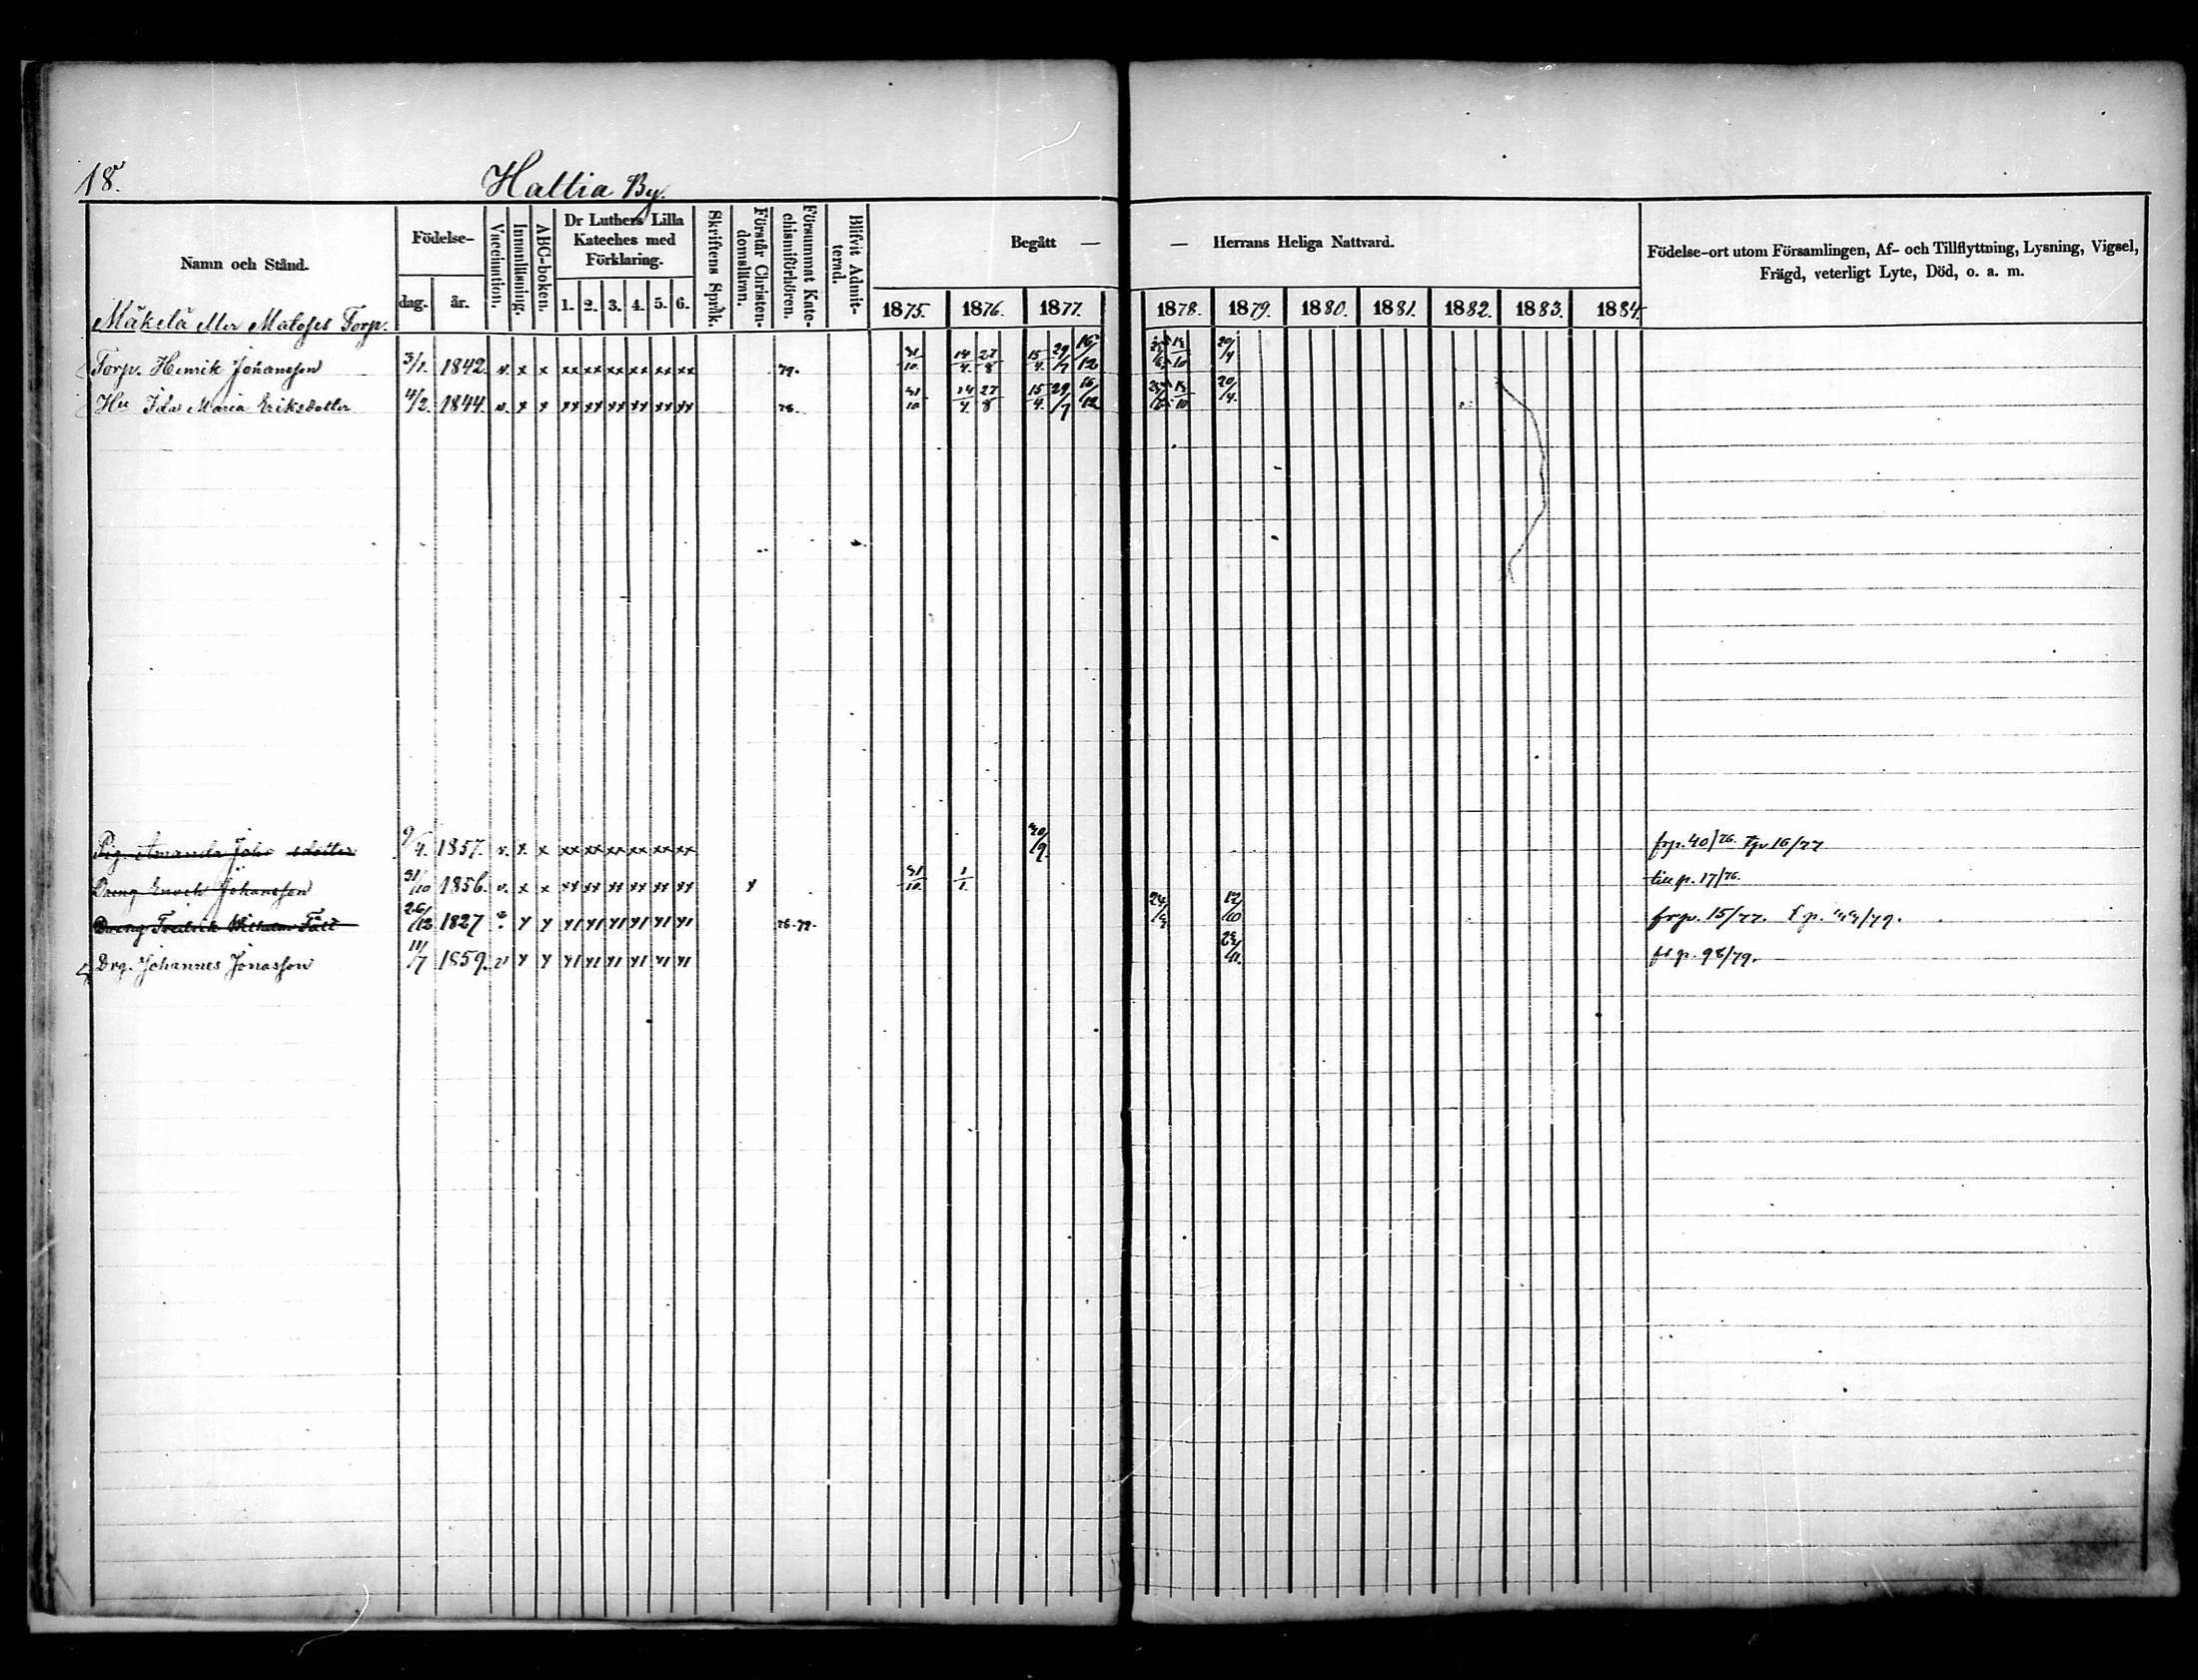 18.
Haltia By.
Namn och Stånd.
Födelse-
dag. år.
Vaccination.
Innanläsning.
ABC-boken.
Dr Luthers Lilla
Kateches med
Förklaring.
1. 2. 3. 4. 5. 6.
Skriftens Språk.
Förstår Christen-
domsläran.
Försummat Kate-
chismiförhören.
Blifvit Admit-
terad.
Begått — — Herrans Heliga Nattvard.
1875. 1876. 1877. 1878. 1879. 1880. 1881. 1882. 1883. 1884.
Födelse-ort utom Församlingen, Af- och Tillflyttning, Lysning, Vigsel,
Frägd, veterligt Lyte, Död, o. a. m.
Mäkelä eller Matofses Torp.
Torp. Henrik Johansson 3/1. 1842. v. x x xx xx xx xx xx xx 79. 31/10. 14/4. 27/8 15/4. 29/7 16/12 20/4
Hu Ida Maria Eriksdotter 4/2. 1844. v. x x xx xx xx xx xx xx 31/10 14/4 27/8 15/4. 29/7 16/12 20/4.
Pig. Amanda Johs dotter 9/4. 1857. v. x. x xx xx xx xx xx xx 30/9. frp. 40/76. Tp 16/77
Dreng Enoch Johansson 31/10 1856. v. x x xx xx xx xx xx xx x 31/10. 1/1. till p. 17/76.
Dreng Fredrik Wilhelm Fält 26/12 1827 frp. 15/77.
Drg. Johannes Jonasson 11/7 1859. v fr p. 98/79.